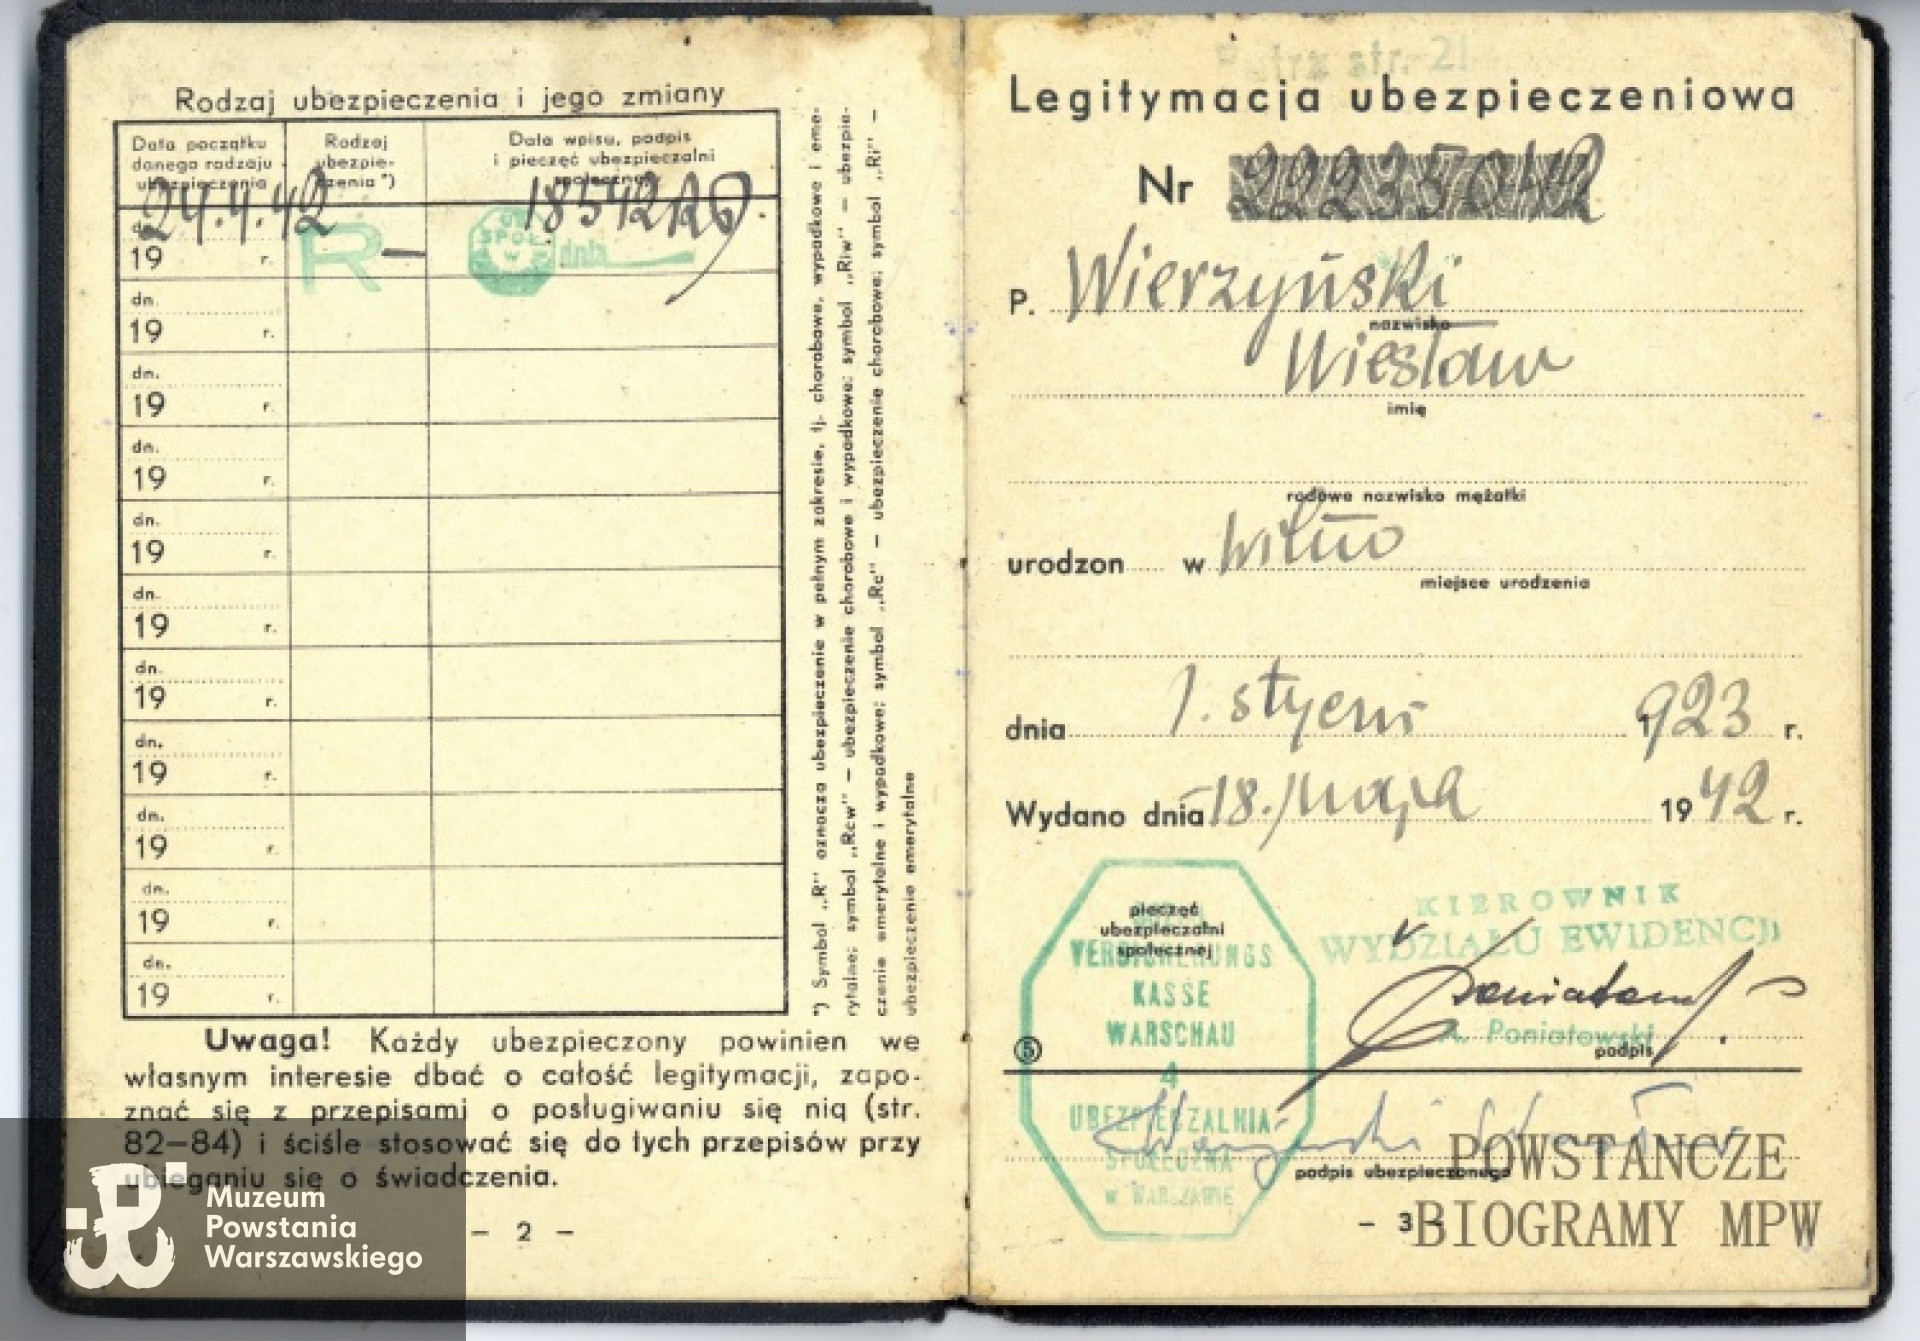 Rodzaj ubezpieczenia i jego zmiany
Data początku danego rodzaju ubezpieczenia
Rodzaj ubezpie- czenia *)
Data wpisu, podpis i pieczęć ubezpieczalni społecznej
24.4.42
R —
18542
dn.
19 r.
dnia
dn.
19 r.
dn.
19 r.
dn.
19 r.
dn.
19 r.
dn.
19 r.
dn.
19 r.
dn.
19 r.
dn.
19 r.
dn.
19 r.
dn.
19 r.
*) Symbol „R" oznacza ubezpieczenie w pełnym zakresie, tj. chorobowe, wypadkowe i eme-
rytalne; symbol „Rcw" — ubezpieczenie chorobowe i wypadkowe; symbol „Riw" — ubezpie-
czenie emerytalne i wypadkowe; symbol „Rc" — ubezpieczenie chorobowe; symbol „Ri" —
ubezpieczenie emerytalne
Uwaga! Każdy ubezpieczony powinien we
własnym interesie dbać o całość legitymacji, zapo-
znać się z przepisami o posługiwaniu się nią (str.
82—84) i ściśle stosować się do tych przepisów przy
ubieganiu się o świadczenia.
— 2 —
Muzeum
Powstania
Warszawskiego
Patrz str. 21
Legitymacja ubezpieczeniowa
Nr 22235042
P. Wierzyński
nazwisko
Wiesław
imię
rodowe nazwisko mężatki
urodzon w Wilno
miejsce urodzenia
dnia 1. styczni 1923 r.
Wydano dnia 18. maja 1942 r.
pieczęć
ubezpieczalni
społecznej
VERSICHERUNGS
KASSE
WARSCHAU
4
UBEZPIECZALNIA
SPOŁECZNA
w WARSZAWIE
KIEROWNIK
WYDZIAŁU EWIDENCJI
Poniatowski
A. Poniatowski
podpis
5
Wierzyński Wiesław
podpis ubezpieczonego
— 3 —
POWSTAŃCZE
BIOGRAMY MPW